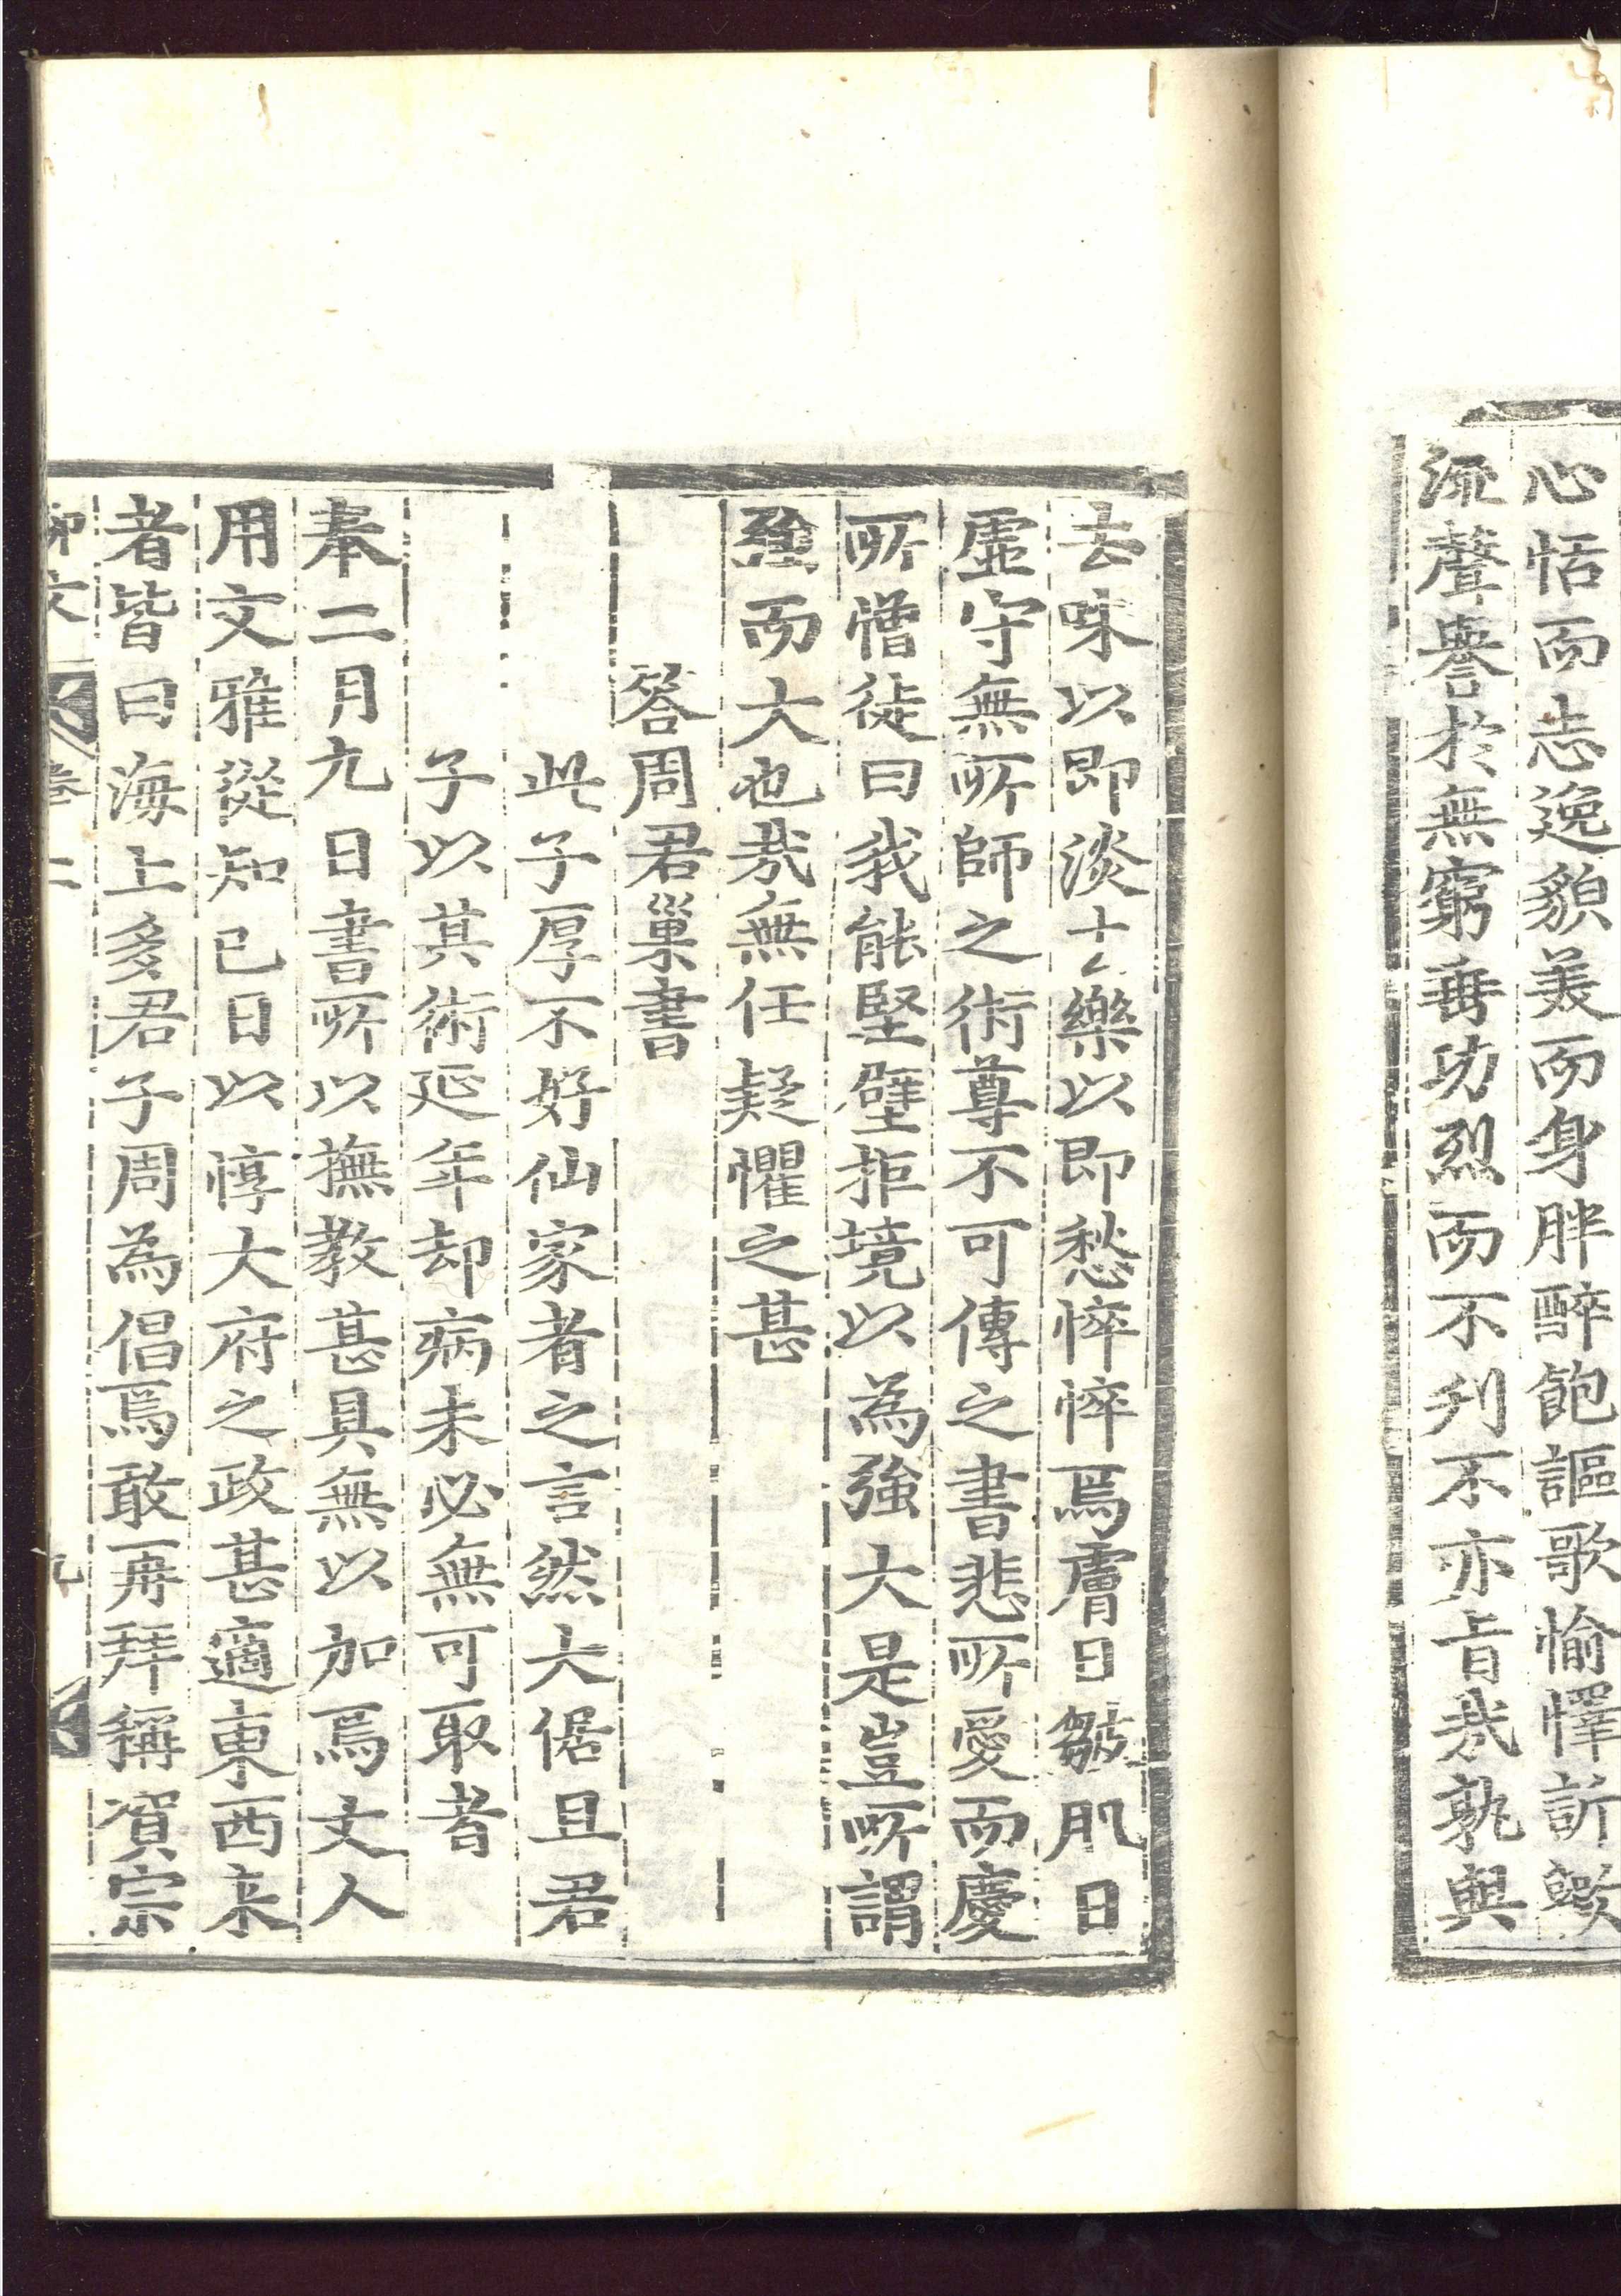 心恬而志逸貌美而身胖醉飽謳歌愉懌訢歡
流聲譽於無窮垂功烈而不刋不亦旨哉孰與
去味以即淡去樂以即愁悴悴焉膚日皺肌日
虛守無所師之術尊不可傳之書悲所愛而慶
所憎徒曰我能堅壁拒境以為強大是豈所謂
強而大也哉無任疑懼之甚
答周君巢書
此子厚不好仙家者之言然大倨且君
子以其術延年却病未必無可取者
奉二月九日書所以撫教甚具無以加焉丈人
用文雅從知已日以惇大府之政甚適東西来
者皆曰海上多君子周為倡焉敢再拜稱賀宗
柳文
卷二
九